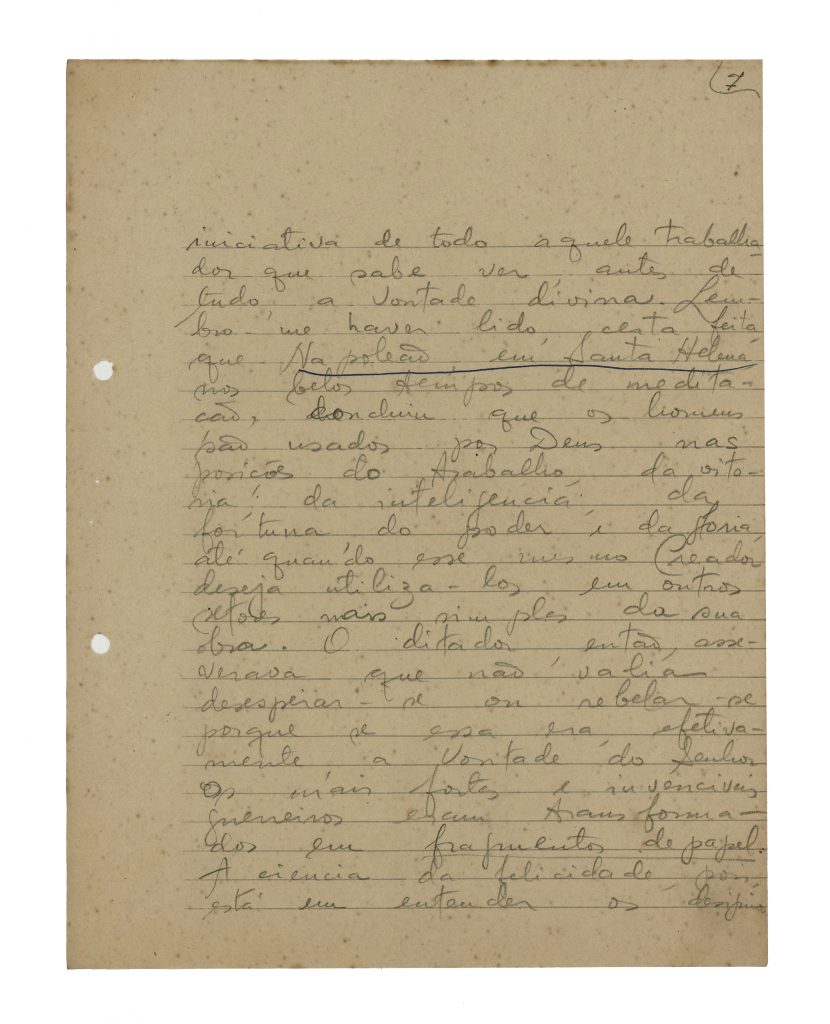 7
iniciativa de todo aquele trabalha
dor que sabe ver antes de
tudo a vontade divina. Lem-
bro-me haver lido certa feita
que Napoleão em Santa Helena
nos belos tempos de medita-
cão, concluiu que os homens
são usados por Deus nas
posicões do trabalho da vito-
ria: da inteligencia: da
fortuna do poder e da gloria
até quando esse mesmo Creador
deseja utiliza-los em outros
setores mais simples da sua
obra. O ditador então, asse-
verava que não valia
desesperar-se ou rebelar-se
porque se essa era efetiva-
mente a vontade do Senhor
os mais fortes e invenciveis
guerreiros eram transforma-
dos em fragmentos de papel.
A ciencia da felicidade pois
está em entender os designios